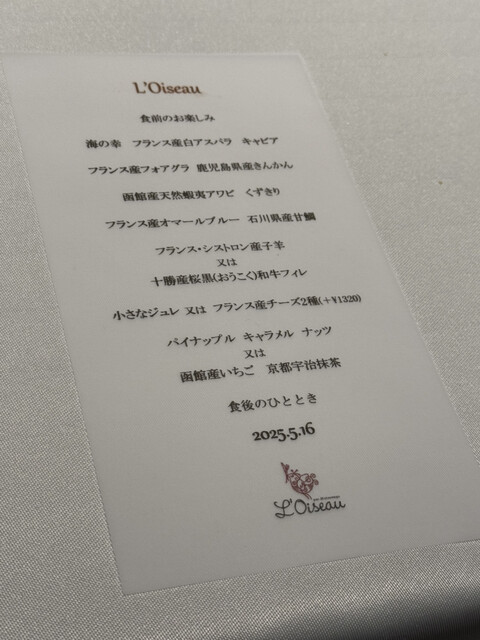 L'Oiseau
食前のお楽しみ
海の幸 フランス産白アスパラ キャビア
フランス産フォアグラ 鹿児島県産きんかん
函館産天然蝦夷アワビ くずきり
フランス産オマールブルー 石川県産甘鯛
フランス・シストロン産子羊
又は
十勝産桜黒(おうこく)和牛フィレ
小さなジュレ 又は フランス産チーズ2種(+¥1320)
パイナップル キャラメル ナッツ
又は
函館産いちご 京都宇治抹茶
食後のひととき
2025.5.16
L'Oiseau